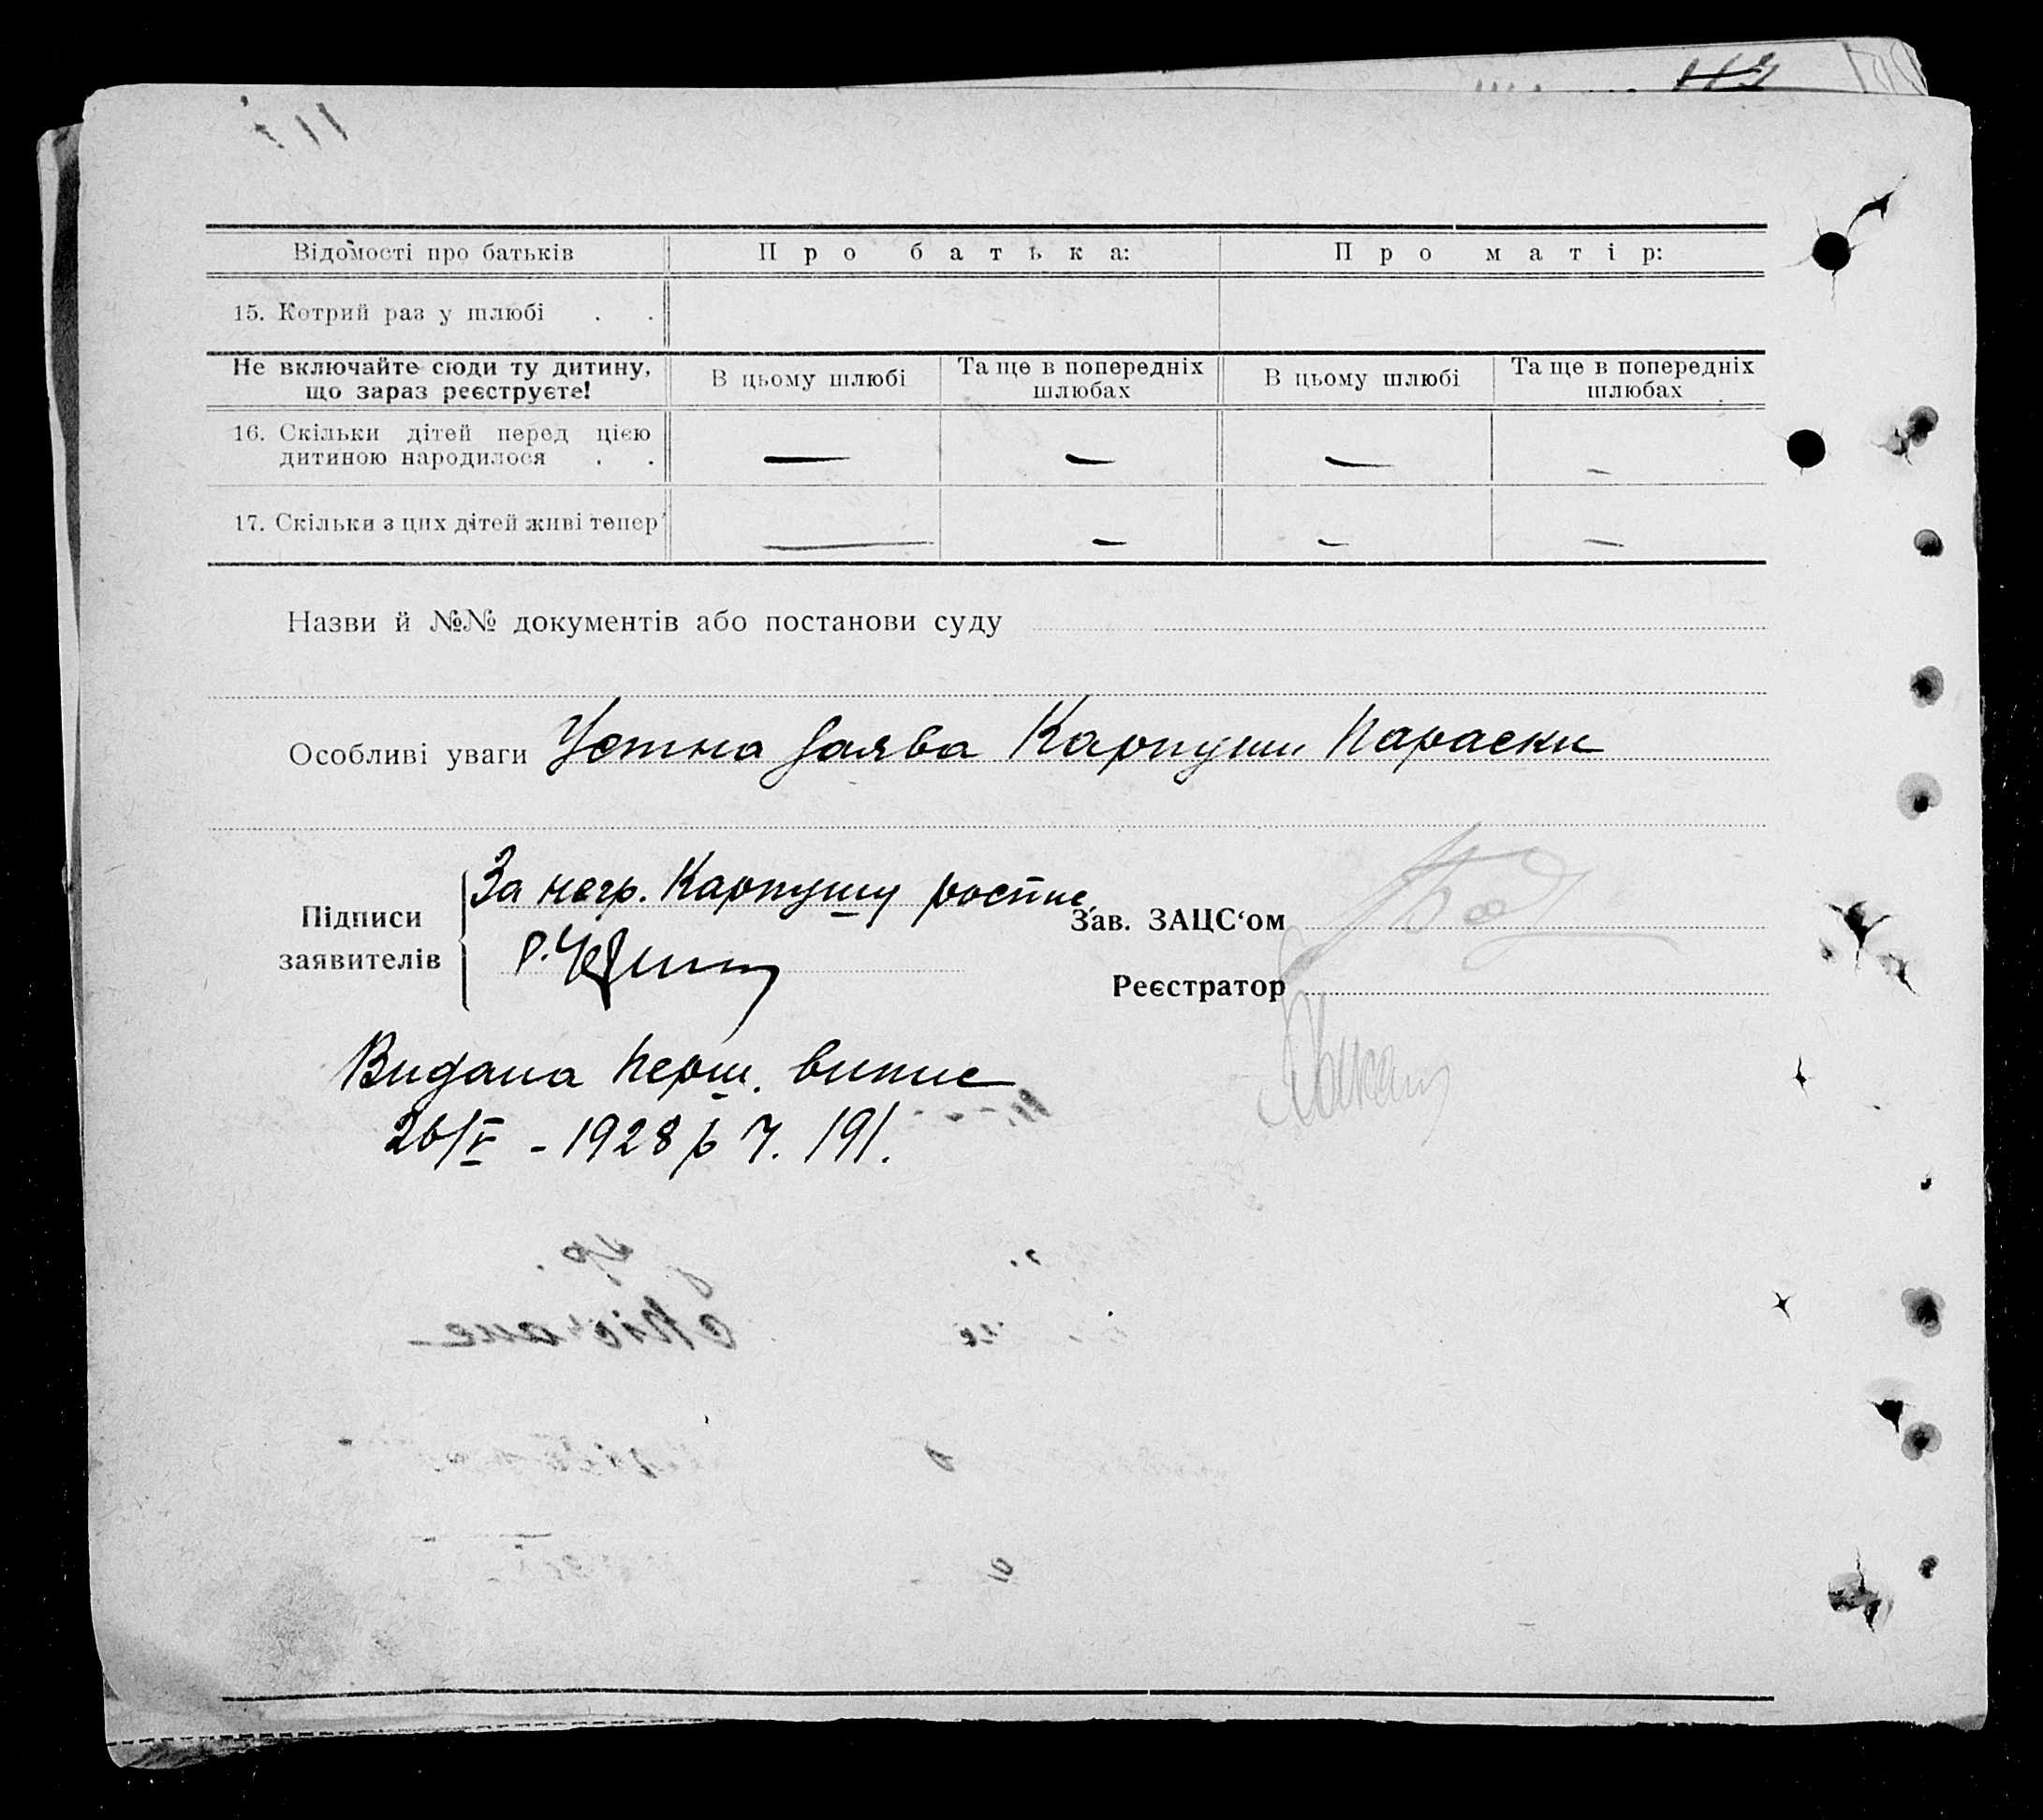 Відомості про батьків Про батька: Про матір:
15. Котрий раз у шлюбі . .
Не включайте сюди ту дитину, що зараз реєструєте!
В цьому шлюбі
Та ще в попередніх шлюбах
В цьому шлюбі
Та ще в попередніх шлюбах
16. Скільки дітей перед цією
дитиною народилося . . — — — —
17. Скільки з цих дітей живі тепер — — — —
Назви й №№ документів або постанови суду
Особливі уваги Устна заява Карпуши Параски
Підписи заявителів
За негр. Карпушу роспис.
Зав. ЗАЦС‘ом
Реєстратор
Видана перш. випис
26/V - 1928 р Ч. 191.